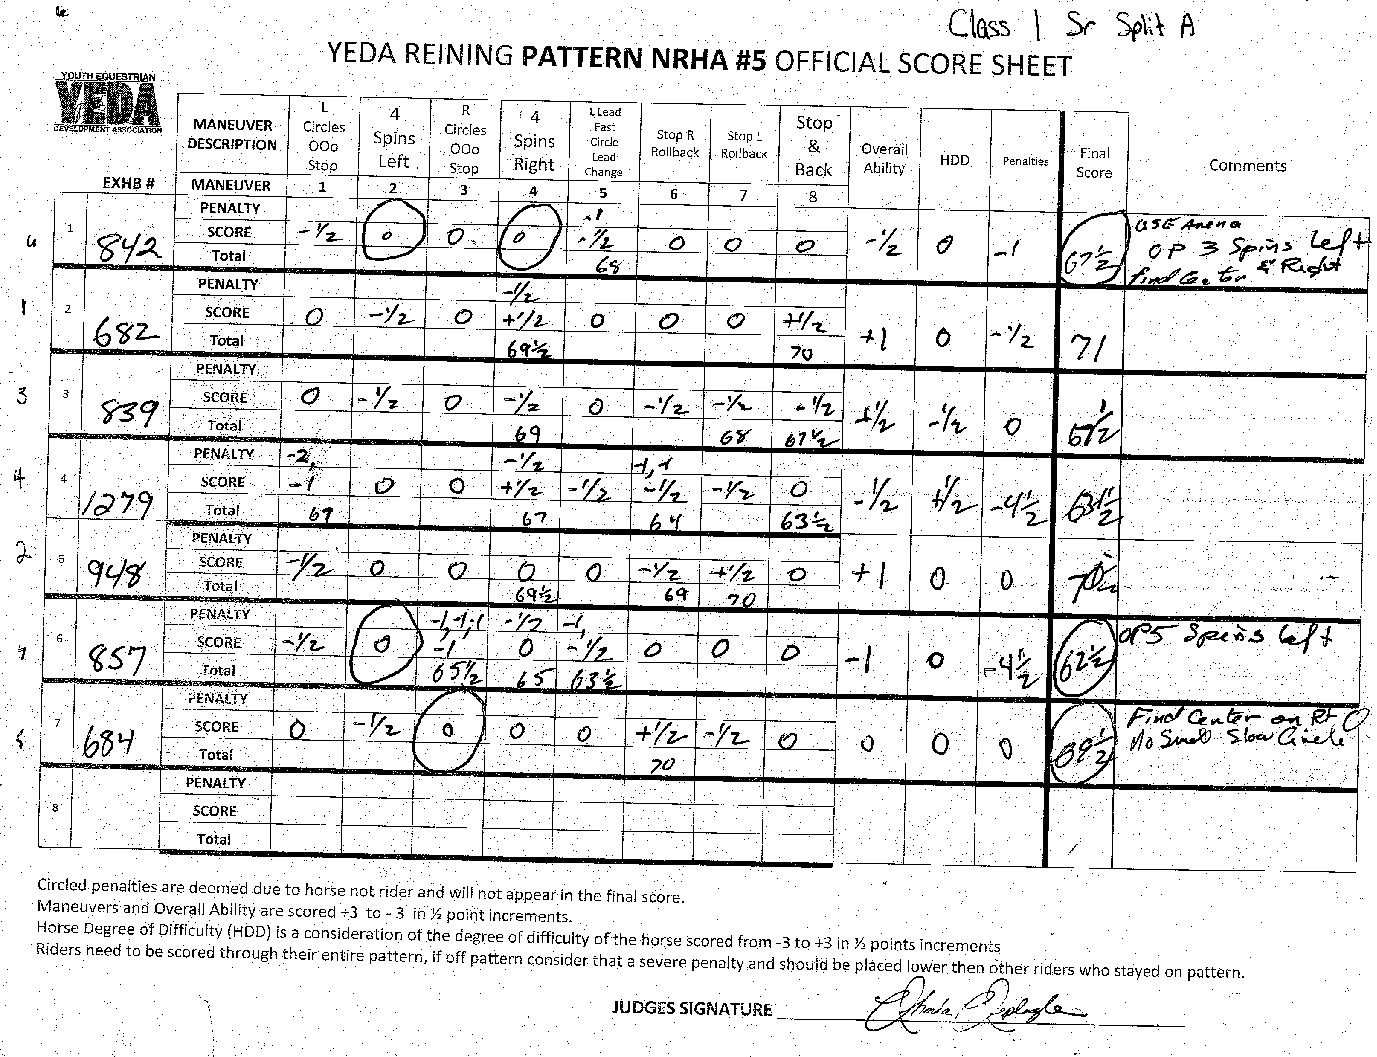 Class 1 Sr Split A
YEDA REINING PATTERN NRHA #5 OFFICIAL SCORE SHEET
YOUTH EQUESTRIAN
YEDA
DEVELOPMENT ASSOCIATION
EXHB #
MANEUVER DESCRIPTION L Circles OOo Stop 4 Spins Left R Circles OOo Stop 4 Spins Right L Lead Fast Circle Lead Change Stop R Rollback Stop L Rollback Stop & Back Overall Ability HDD Penalties Final Score Comments
MANEUVER 1 2 3 4 5 6 7 8
PENALTY -1
6 1 842 SCORE -1/2 0 0 0 -1/2 0 0 0 -1/2 0 -1 67 1/2 USE Arena
OP 3 Spins Left
& Right
find Center
Total 68
PENALTY -1/2
1 2 682 SCORE 0 -1/2 0 +1/2 0 0 0 +1/2 +1 0 -1/2 71
Total 69 1/2 70
PENALTY
3 3 839 SCORE 0 -1/2 0 -1/2 0 -1/2 -1/2 -1/2 +1/2 -1/2 0 67 1/2
Total 69 68 67 1/2
PENALTY -2, -1/2 -1,-1
4 4 1279 SCORE -1 0 0 +1/2 -1/2 -1/2 -1/2 0 -1/2 +1/2 -4 1/2 63 1/2
Total 67 67 64 63 1/2
PENALTY
2 5 948 SCORE -1/2 0 0 0 0 -1/2 +1/2 0 +1 0 0
Total 69 1/2 69 70
PENALTY -1,-1,-1 -1/2 -1,
7 6 857 SCORE -1/2 0 -1 0 -1/2 0 0 0 -1 0 -4 1/2 62 1/2 OP 5 Spins Left
Total 65 1/2 65 63 1/2
PENALTY
5 7 684 SCORE 0 -1/2 0 0 0 +1/2 -1/2 0 0 0 0 69 1/2 Find Center on Rt O
No Small Slow Circle
Total 70
PENALTY
8 SCORE
Total
Circled penalties are deemed due to horse not rider and will not appear in the final score.
Maneuvers and Overall Ability are scored +3 to - 3 in ½ point increments.
Horse Degree of Difficulty (HDD) is a consideration of the degree of difficulty of the horse scored from -3 to +3 in ½ points increments
Riders need to be scored through their entire pattern, if off pattern consider that a severe penalty and should be placed lower then other riders who stayed on pattern.
JUDGES SIGNATURE